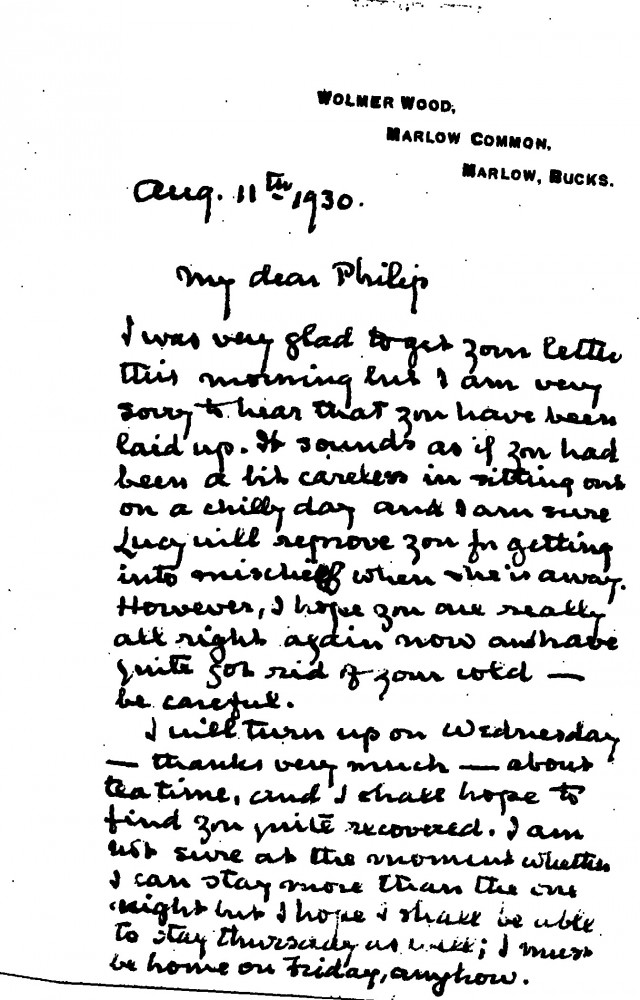 WOLMER WOOD,
MARLOW COMMON,
MARLOW, BUCKS.
Aug. 11th 1930.
My dear Philip
I was very glad to get your letter
this morning but I am very
sorry to hear that you have been
laid up. It sounds as if you had
been a bit careless in sitting out
on a chilly day and I am sure
Lucy will reprove you for getting
into mischief when she is away.
However, I hope you are really
all right again now and have
quite got rid of your cold —
be careful.
I will turn up on Wednesday
— thanks very much — about
tea time, and I shall hope to
find you quite recovered. I am
not sure at the moment whether
I can stay more than the one
night but I hope I shall be able
to stay Thursday as well; I must
be home on Friday, anyhow.